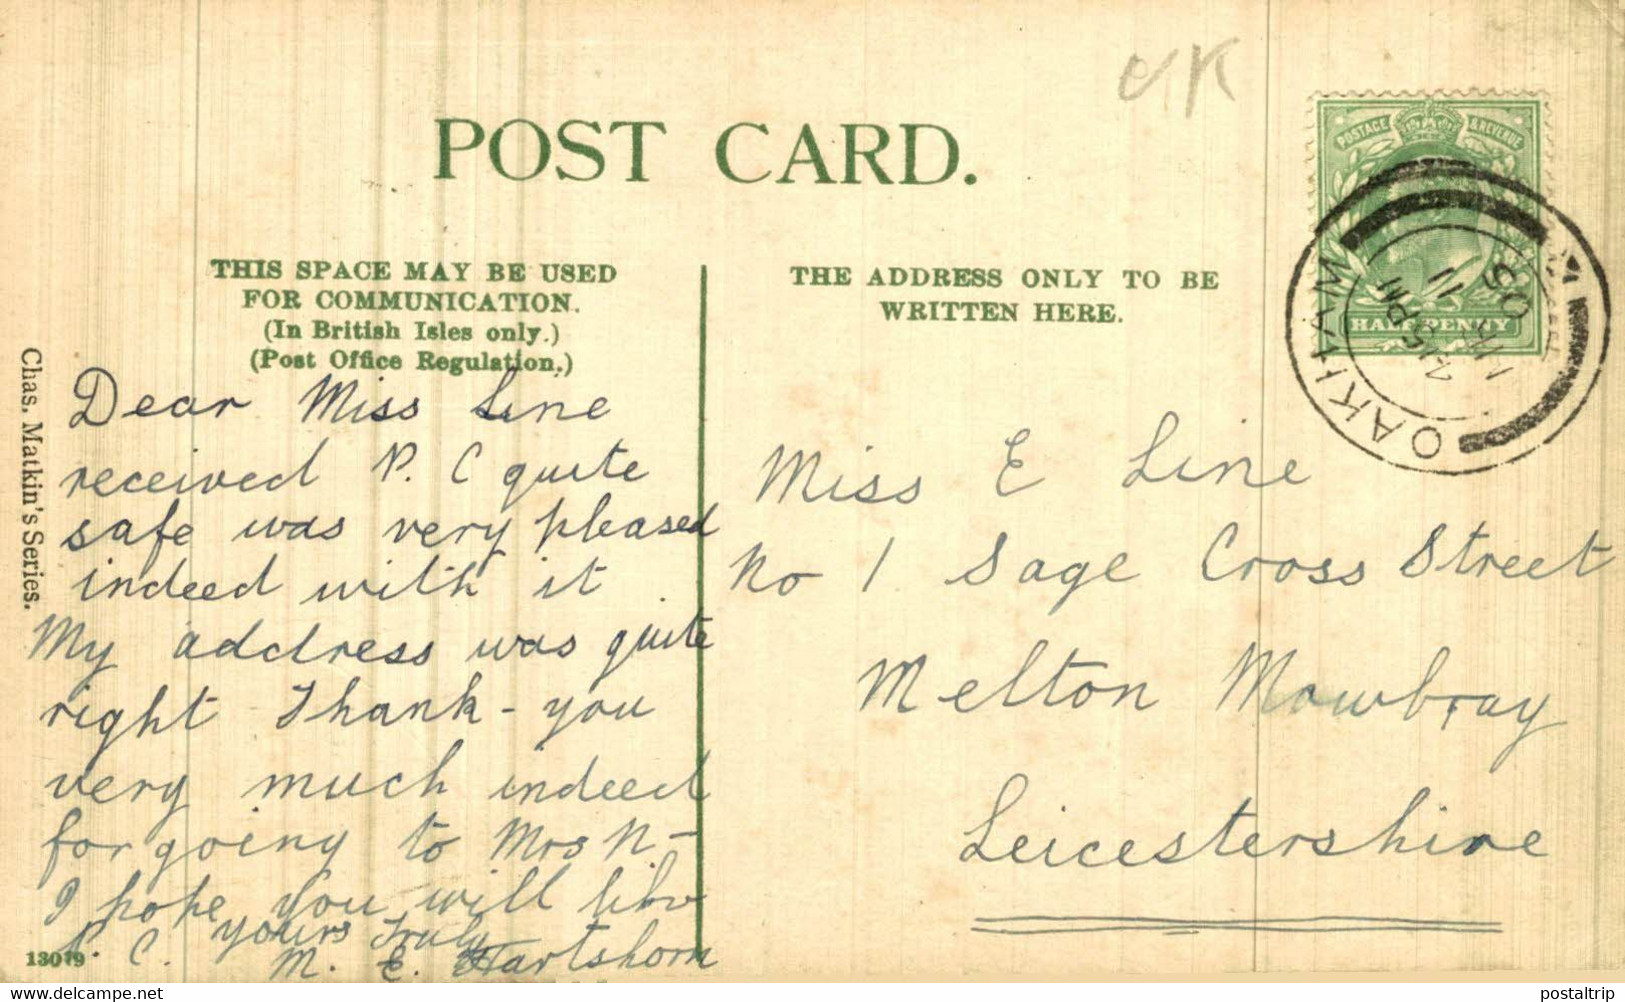 UK
POST CARD.
POSTAGE & REVENUE
HALFPENNY
OAKHAM
7.15 PM
11
05
THIS SPACE MAY BE USED
FOR COMMUNICATION.
(In British Isles only.)
(Post Office Regulation.)
THE ADDRESS ONLY TO BE
WRITTEN HERE.
Chas. Matkin's Series.
Dear Miss Line
received P. C quite
safe was very pleased
indeed with it
My address was quite
right Thank-you
very much indeed
for going to Mrs N-
I hope you will like
P. C. yours Truly
M. E. Hartshorn
13079
Miss E Line
No 1 Sage Cross Street
Melton Mowbray
Leicestershire
hippostcard
postaltrip